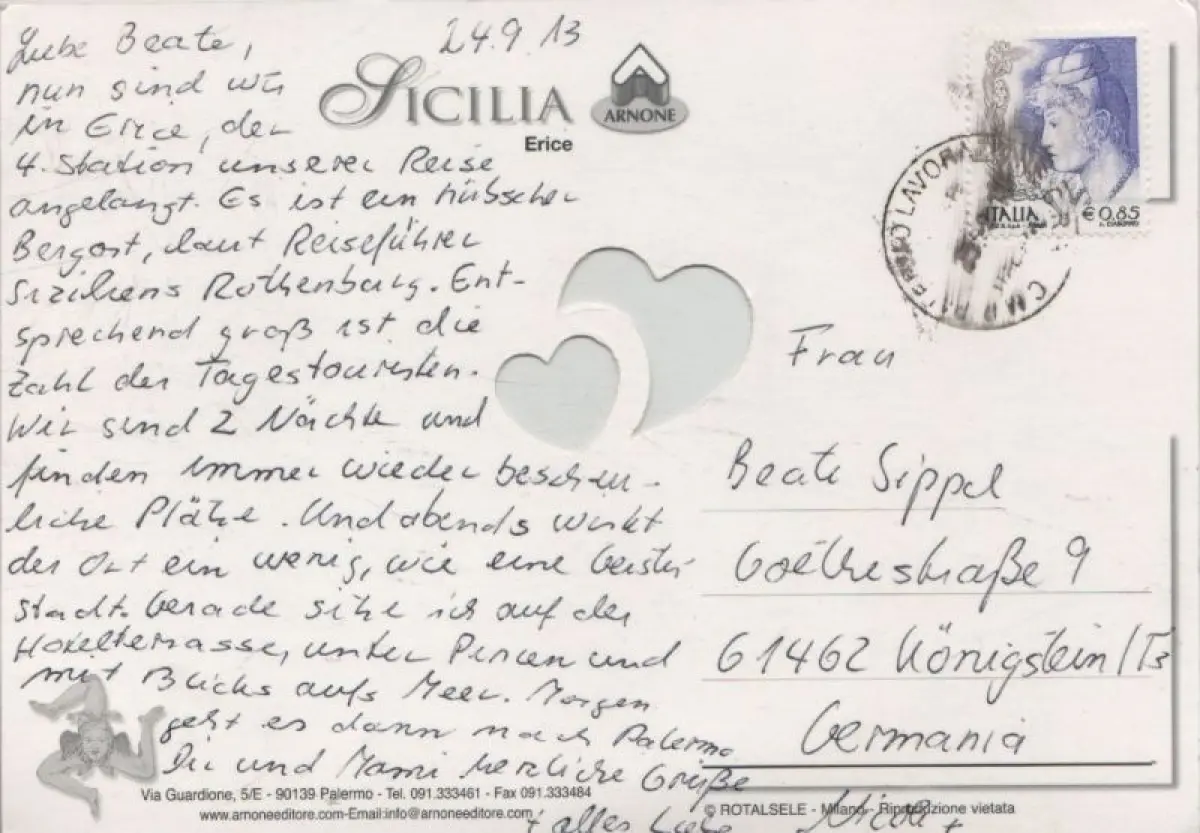 24.9.13
Liebe Beate,
nun sind wir
in Erice, der
4. Station unserer Reise
angelangt. Es ist ein hübscher
Bergort, laut Reiseführer
Siziliens Rothenburg. Ent-
sprechend groß ist die
Zahl der Tagestouristen.
Wir sind 2 Nächte und
finden immer wieder beschau-
liche Plätze. Und abends wirkt
der Ort ein wenig, wie eine Geister
stadt. Gerade sitze ich auf der
Hotelterrasse, unter Pinien und
mit Blick aufs Meer. Morgen
geht es dann nach Palermo
Dir und Mami herzliche Grüße
+ alles Liebe
SICILIA
Erice
ARNONE
ITALIA €0,85
Frau
Beate Sippel
Goethestraße 9
61462 Königstein/Ts
Germania
Via Guardione, 5/E - 90139 Palermo - Tel. 091.333461 - Fax 091.333484
www.arnoneeditore.com-Email:info@arnoneeditore.com
© ROTALSELE - Milano - Riproduzione vietata